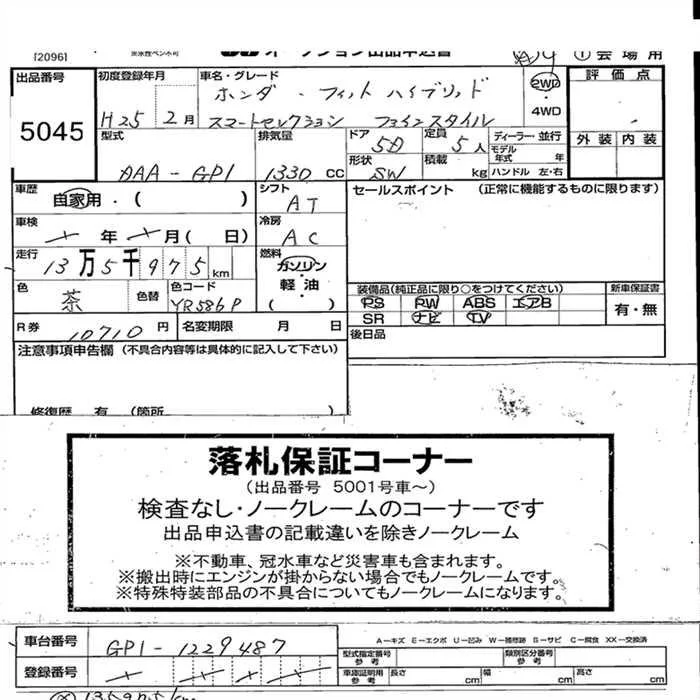 [2096] オークション出品申込書 ①会場用
出品番号 5045
初度登録年月 H25 2月
車名・グレード ホンダ・フィットハイブリッド
スマートセレクション ファインスタイル
2WD
4WD
評価点
外装 内装
型式 DAA-GP1
排気量 1330 CC
ドア 5D
定員 5人
ディーラー・並行
モデル年式 年
形状 SW
積載 kg
ハンドル 左・右
車歴 自家用・( )
シフト AT
セールスポイント (正常に機能するものに限ります)
車検 年 月( 日)
冷房 AC
走行 13万5千975km
燃料 ガソリン
軽油・
( )
色 茶
色替
色コード YR586P
装備品(純正品に限り○をつけてください)
PS PW ABS エアB
SR ナビ TV
新車保証書
有・無
R券 10710円
名変期限 月 日
後日品
注意事項申告欄 (不具合内容等は具体的に記入して下さい)
修復歴 有 (箇所
落札保証コーナー
(出品番号 5001号車〜)
検査なし・ノークレームのコーナーです
出品申込書の記載違いを除きノークレーム
※不動車、冠水車など災害車も含まれます。
※搬出時にエンジンが掛からない場合でもノークレームです。
※特殊特装部品の不具合についてもノークレームになります。
車台番号 GP1-1229487
A−キズ E−エクボ U−凹み W−補修跡 S−サビ C−腐食 XX−交換済
型式指定番号 参考
類別区分番号 参考
登録番号
車庫証明用 参考 長さ cm 幅 cm 高さ cm